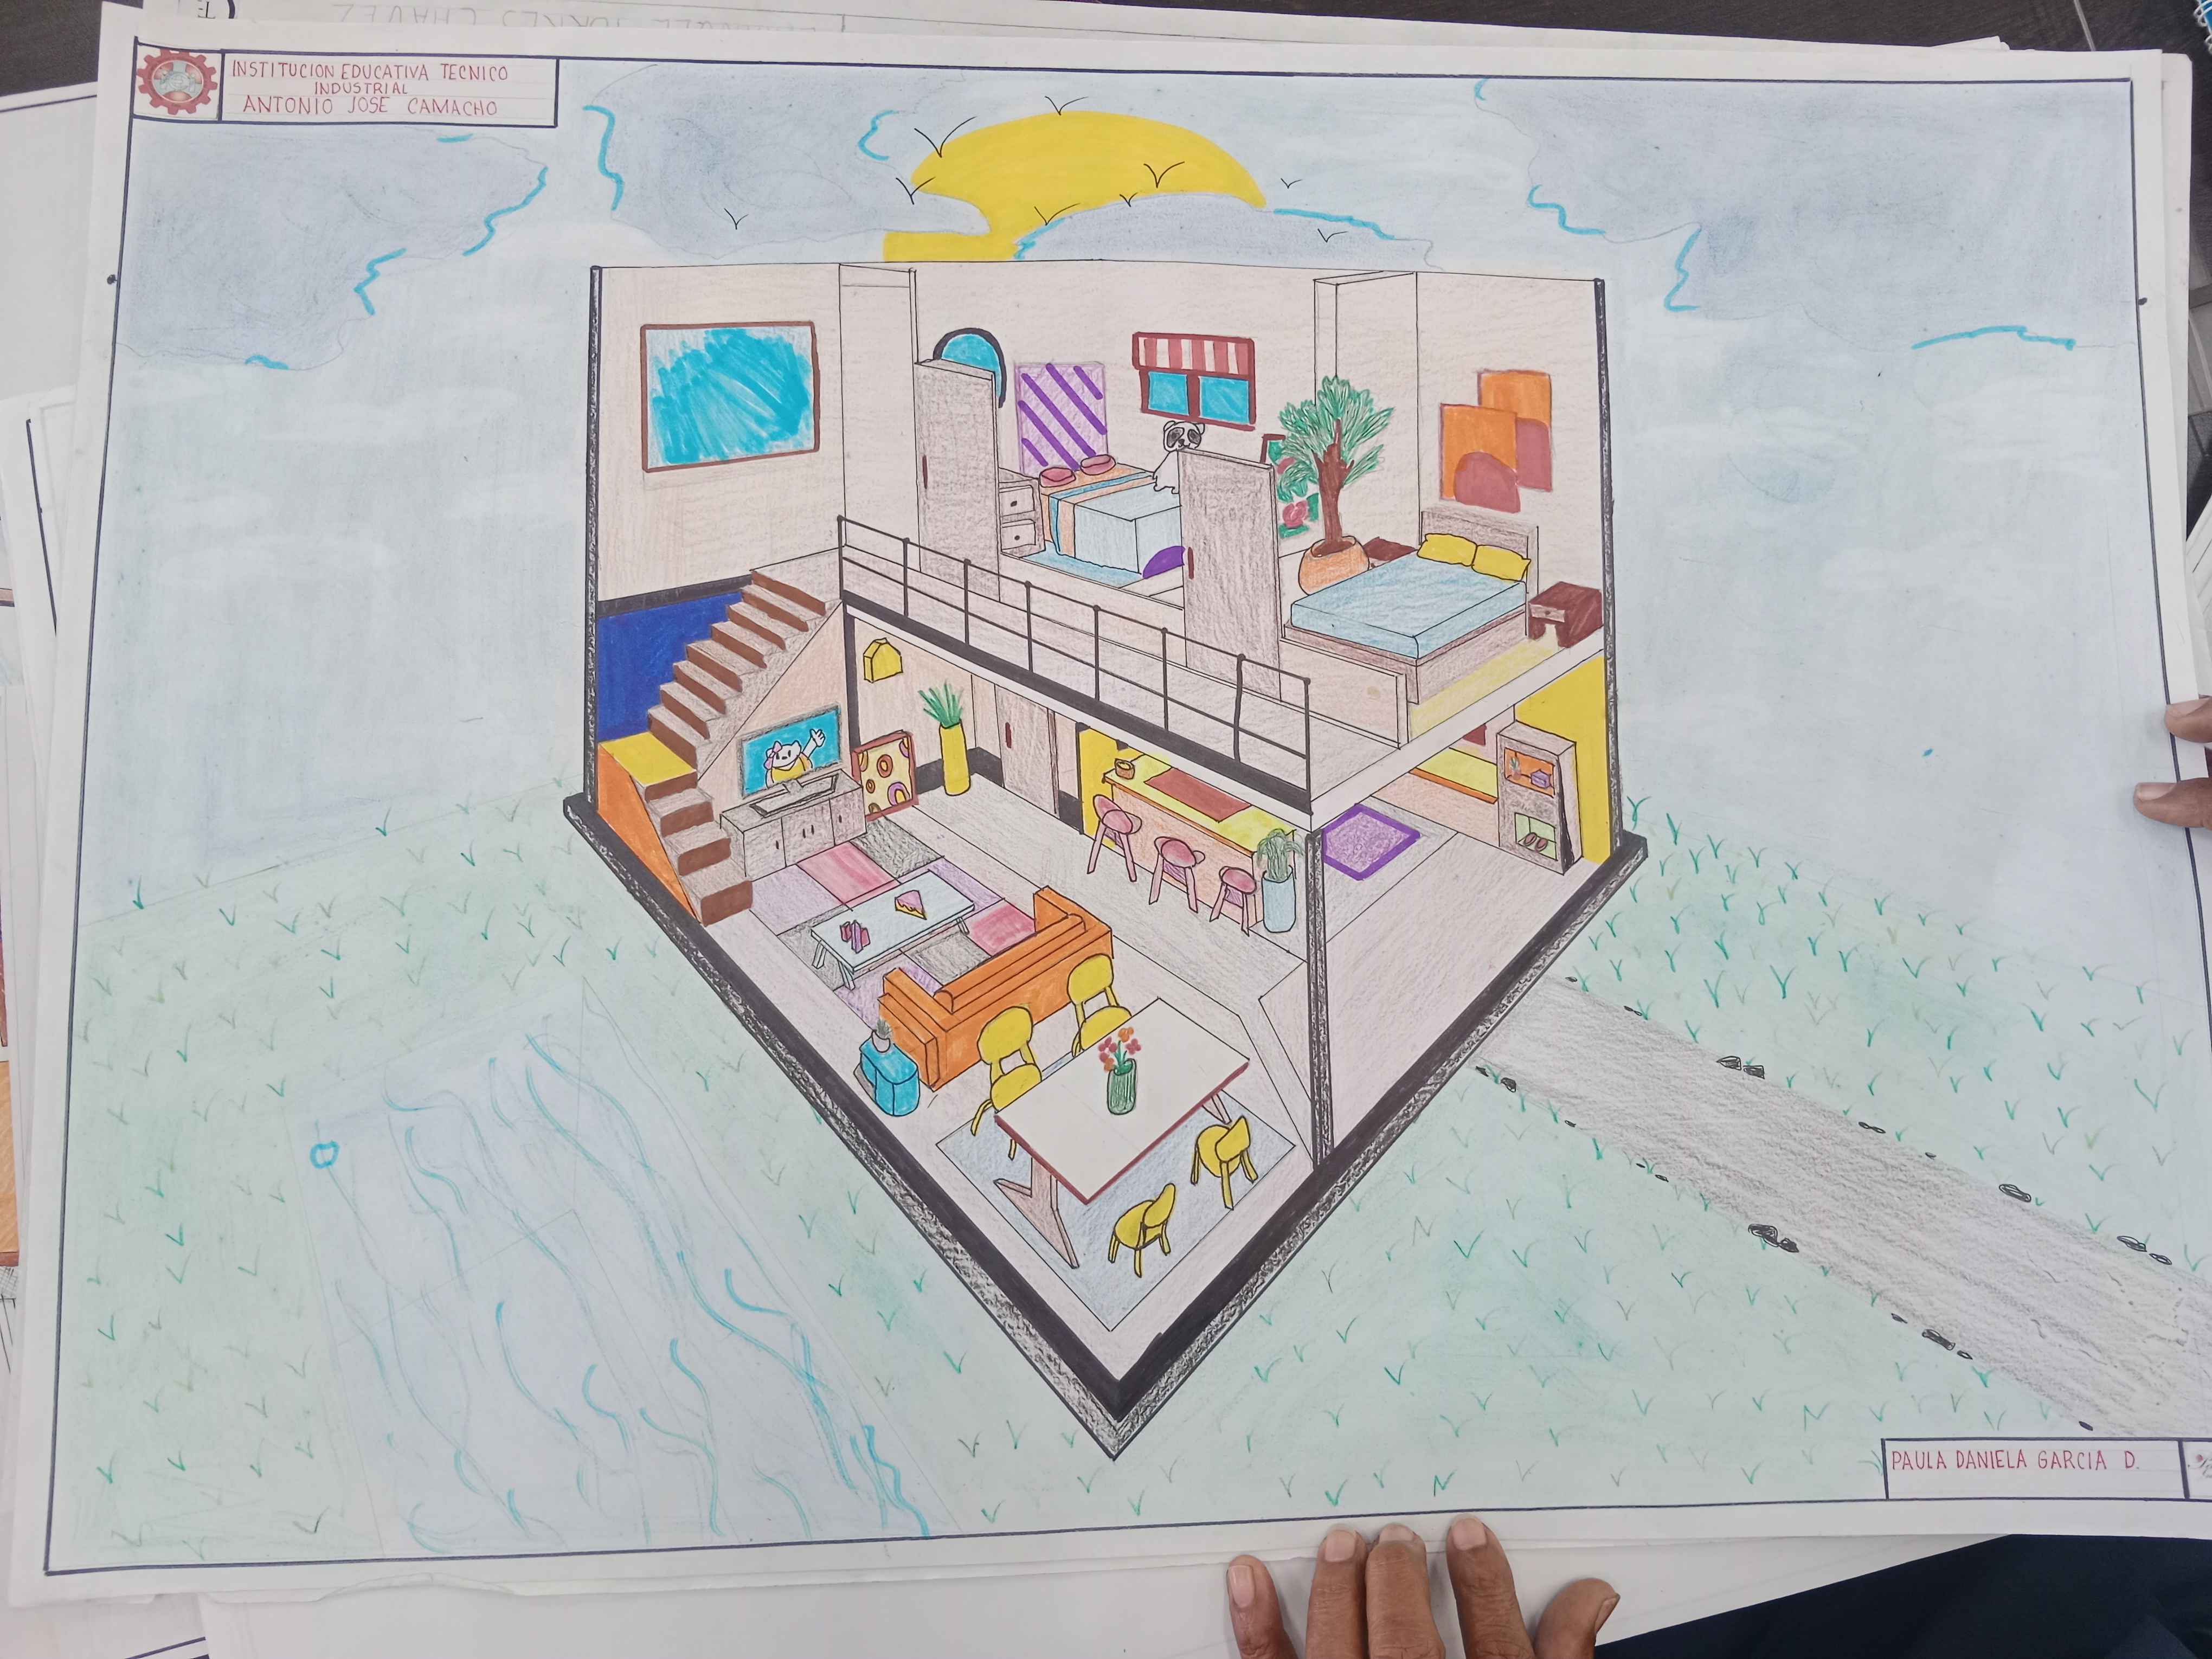 INSTITUCION EDUCATIVA TECNICO
INDUSTRIAL
ANTONIO JOSE CAMACHO
PAULA DANIELA GARCIA D.